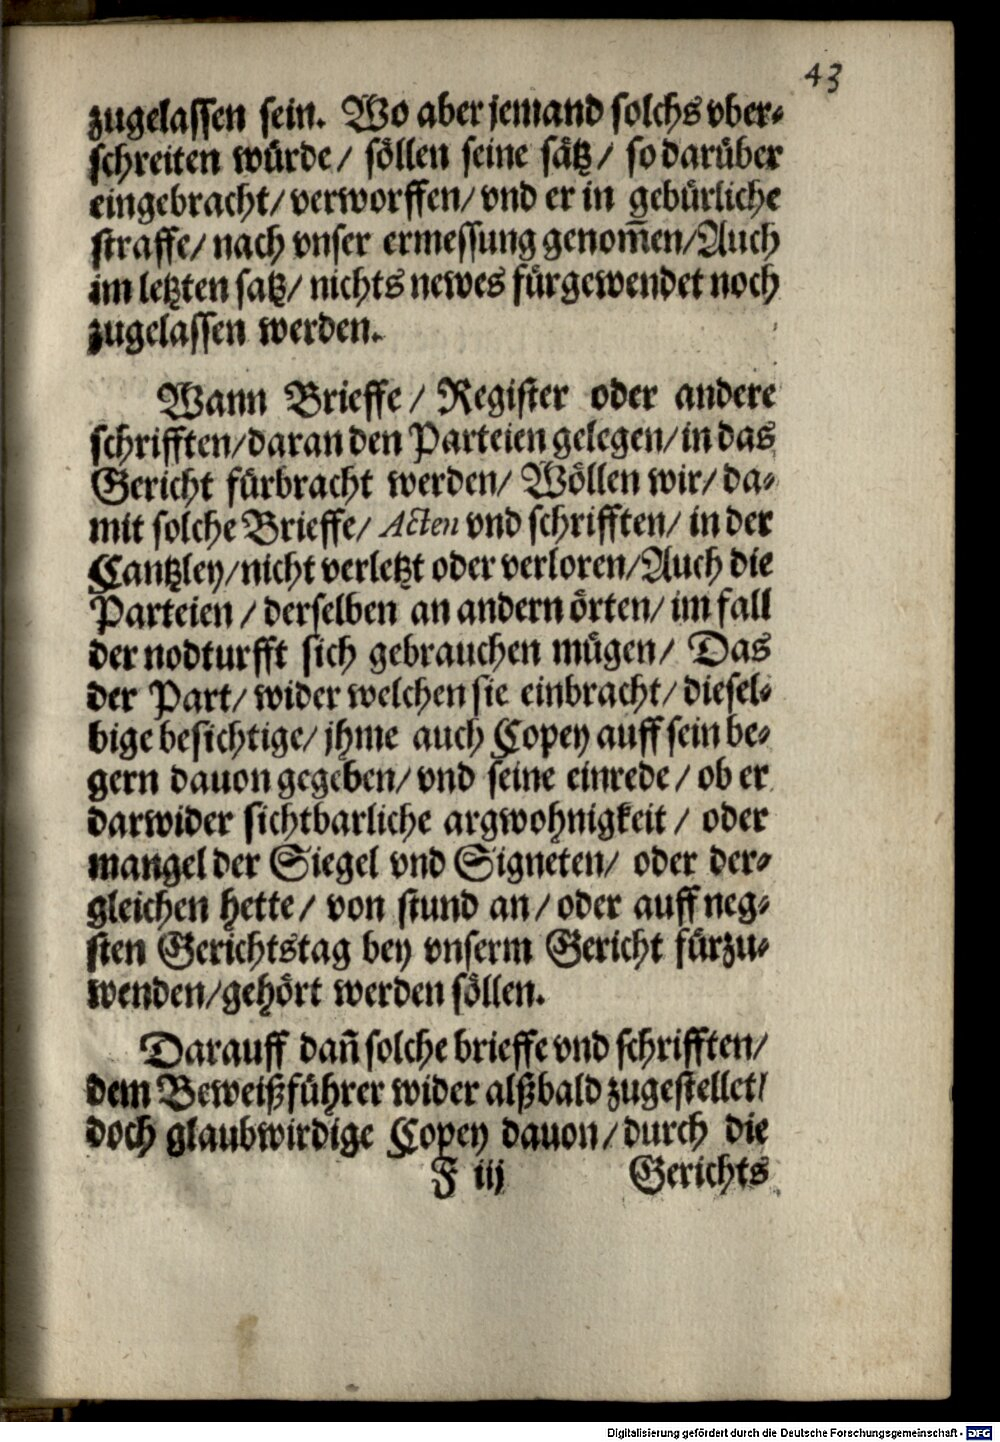 43
zugelassen sein. Wo aber jemand solchs vber-
schreiten würde/ söllen seine sätz/ so darüber
eingebracht/ verworffen/ vnd er in gebürliche
straffe/ nach vnser ermessung genom̃en/ Auch
im letzten satz/ nichts newes fürgewendet noch
zugelassen werden.
Wann Brieffe/ Register oder andere
schrifften/ daran den Parteien gelegen/ in das
Gericht fürbracht werden/ Wöllen wir/ da-
mit solche Brieffe/ Acten vnd schrifften/ in der
Cantzley/ nicht verletzt oder verloren/ Auch die
Parteien/ derselben an andern örten/ im fall
der nodturfft sich gebrauchen mügen/ Das
der Part/ wider welchen sie einbracht/ diesel-
bige besichtige/ jhme auch Copey auff sein be-
gern dauon gegeben/ vnd seine einrede/ ob er
darwider sichtbarliche argwohnigkeit/ oder
mangel der Siegel vnd Signeten/ oder der-
gleichen hette/ von stund an/ oder auff neg-
sten Gerichtstag bey vnserm Gericht fürzu-
wenden/ gehört werden söllen.
Darauff dañ solche brieffe vnd schrifften/
dem Beweißführer wider alßbald zugestellet/
doch glaubwirdige Copey dauon/ durch die
F iij Gerichts
Digitalisierung gefördert durch die Deutsche Forschungsgemeinschaft - DFG